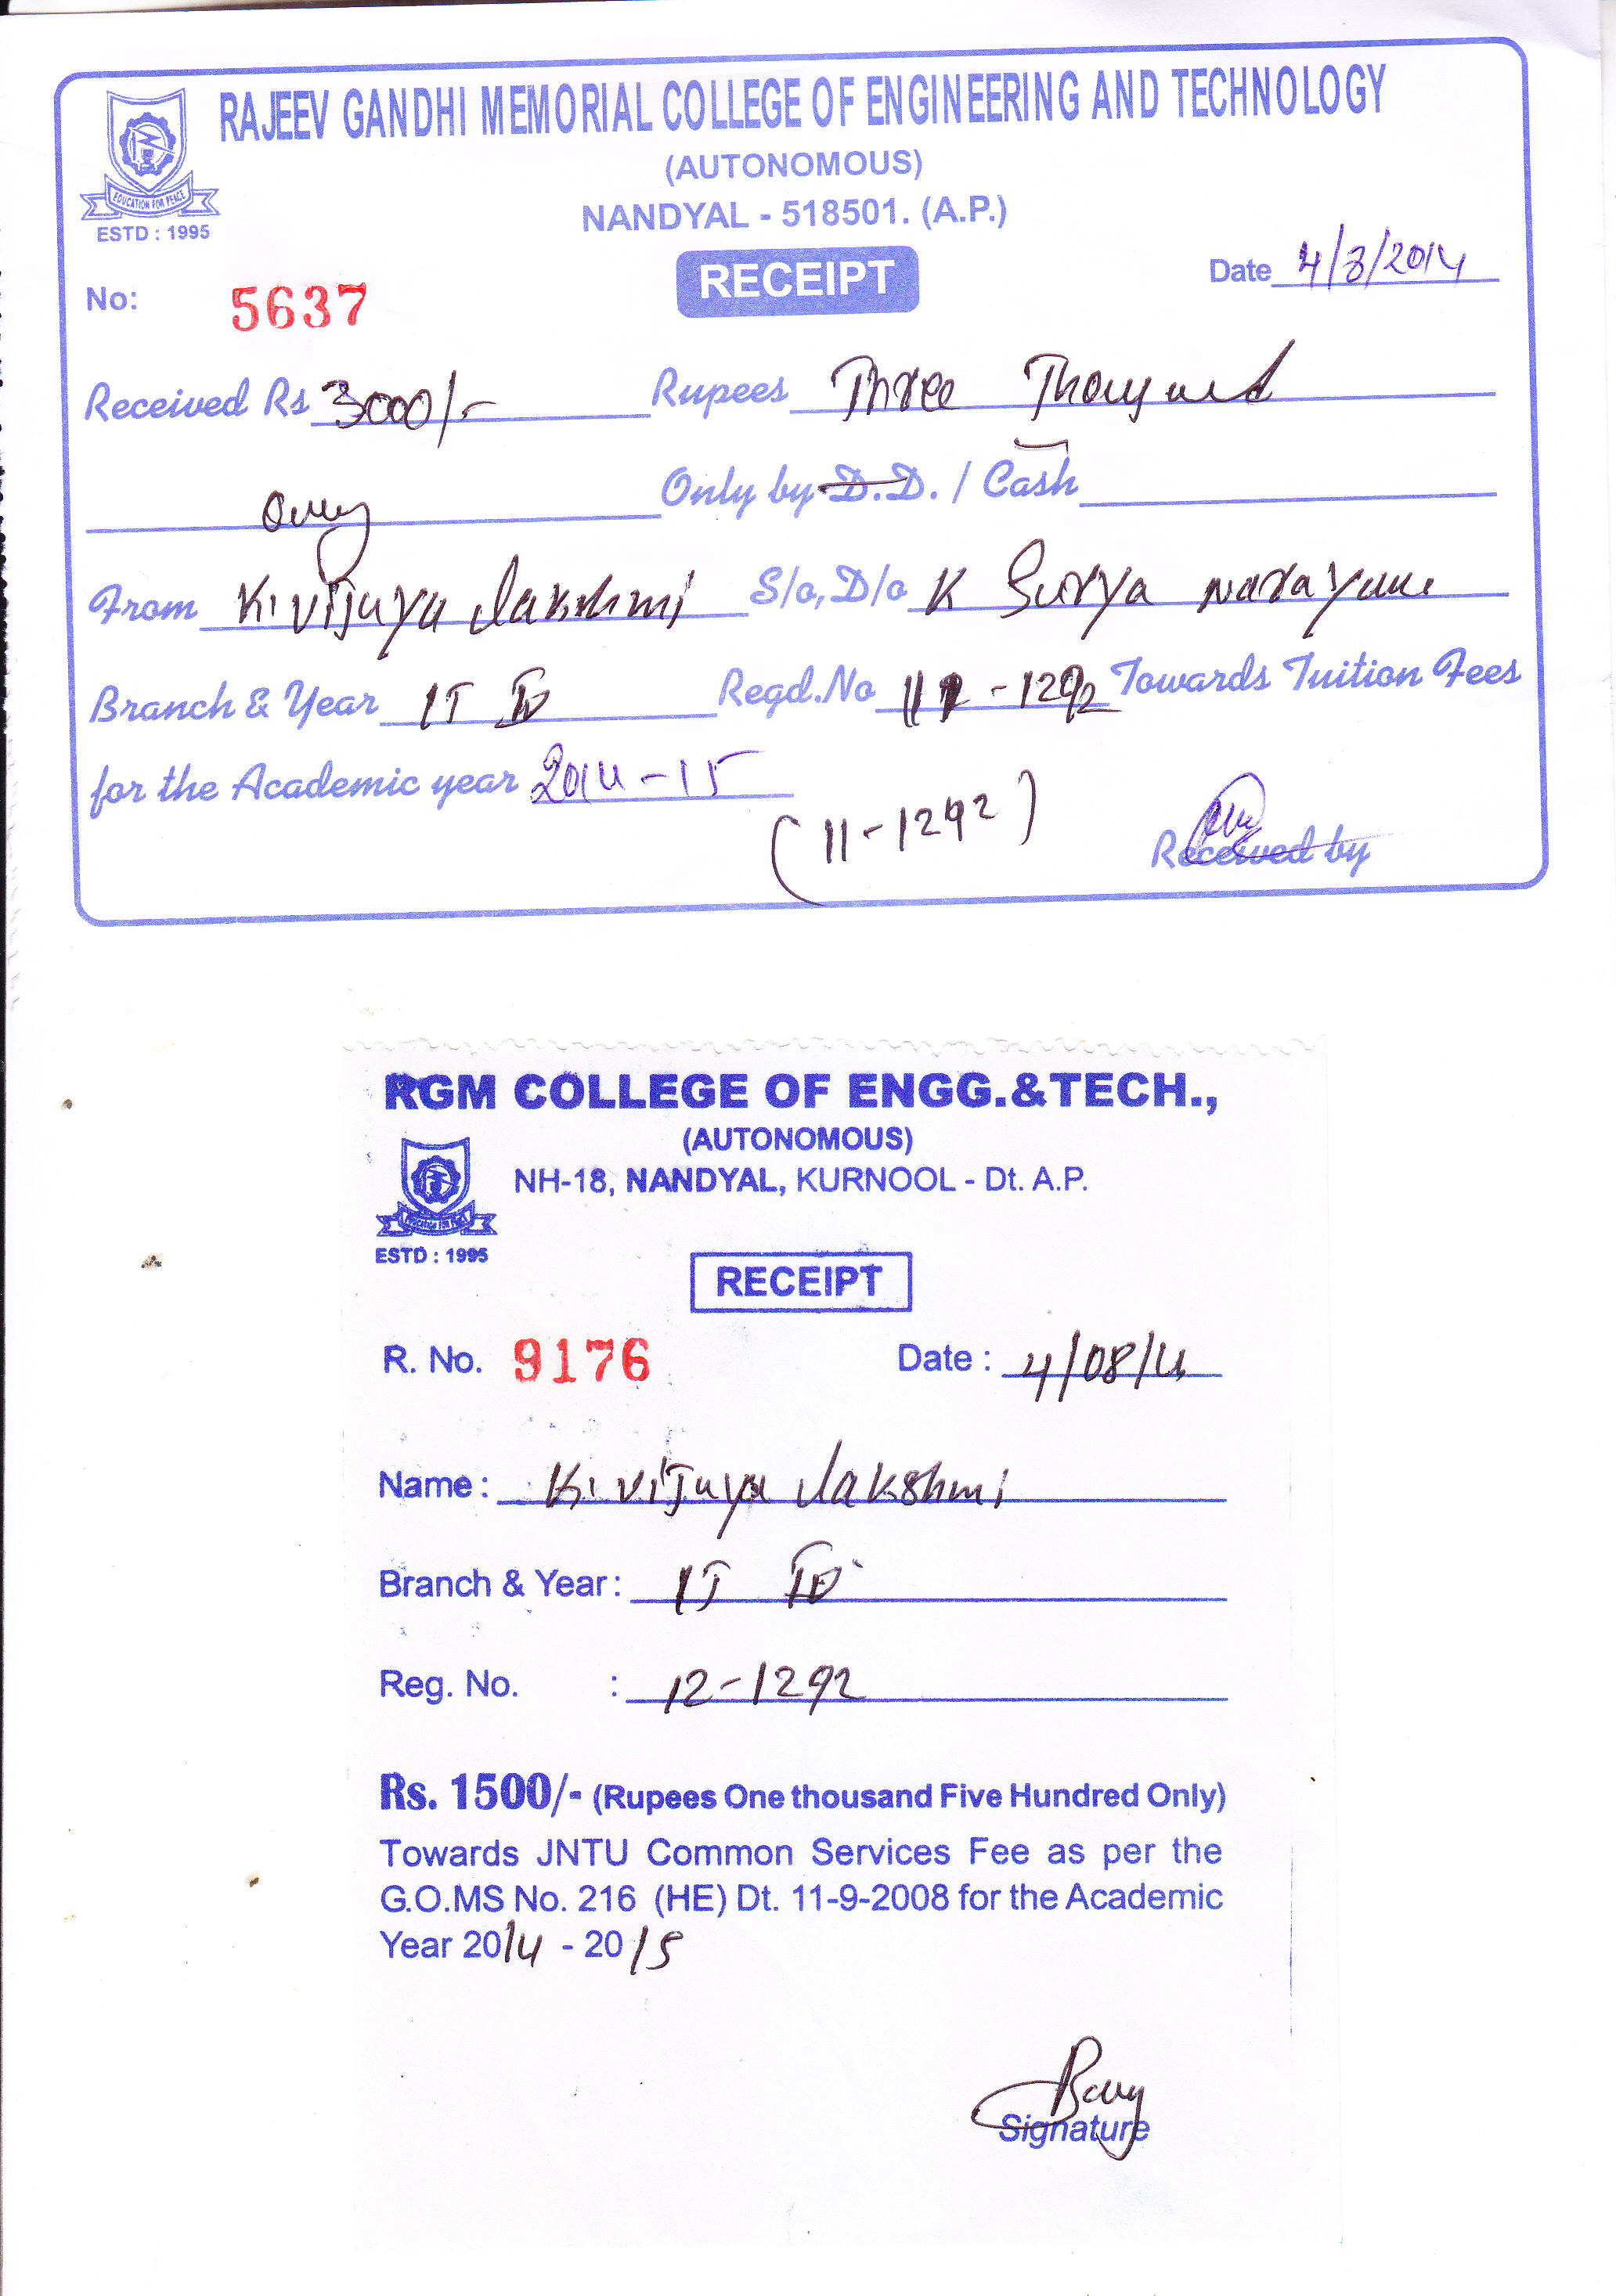 RAJEEV GANDHI MEMORIAL COLLEGE OF ENGINEERING AND TECHNOLOGY
(AUTONOMOUS)
NANDYAL - 518501. (A.P.)
EDUCATION FOR PEACE
ESTD : 1995
RECEIPT
No: 5637 Date 4/8/2014
Received Rs 3000/- Rupees Three Thousand
only Only by D.D. / Cash
From K. Vijaya lakshmi S/o, D/o K Surya narayana
Branch & Year IT IV Regd.No 11-1292 Towards Tuition Fees
for the Academic year 2014-15
(11-1292)
Received by
RGM COLLEGE OF ENGG.&TECH.,
(AUTONOMOUS)
NH-18, NANDYAL, KURNOOL - Dt. A.P.
ESTD : 1995
RECEIPT
R. No. 9176 Date : 4/08/14
Name : K. Vijaya lakshmi
Branch & Year : IT IV
Reg. No. : 12-1292
Rs. 1500/- (Rupees One thousand Five Hundred Only)
Towards JNTU Common Services Fee as per the
G.O.MS No. 216 (HE) Dt. 11-9-2008 for the Academic
Year 2014 - 2015
Signature